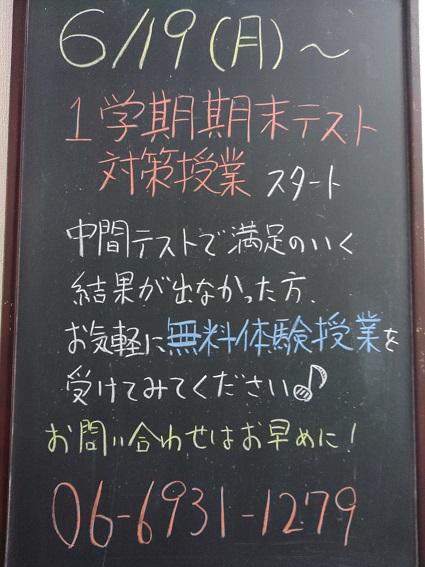 6/19(月)～
1学期期末テスト
対策授業 スタート
中間テストで満足のいく
結果が出なかった方、
お気軽に無料体験授業を
受けてみてください♪
お問い合わせはお早めに!
06-6931-1279